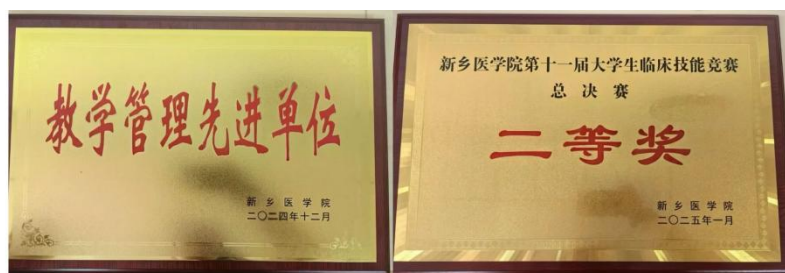 教学管理先进单位
新乡医学院
二〇二四年十二月
新乡医学院第十一届大学生临床技能竞赛
总决赛
二等奖
新乡医学院
二〇二五年一月